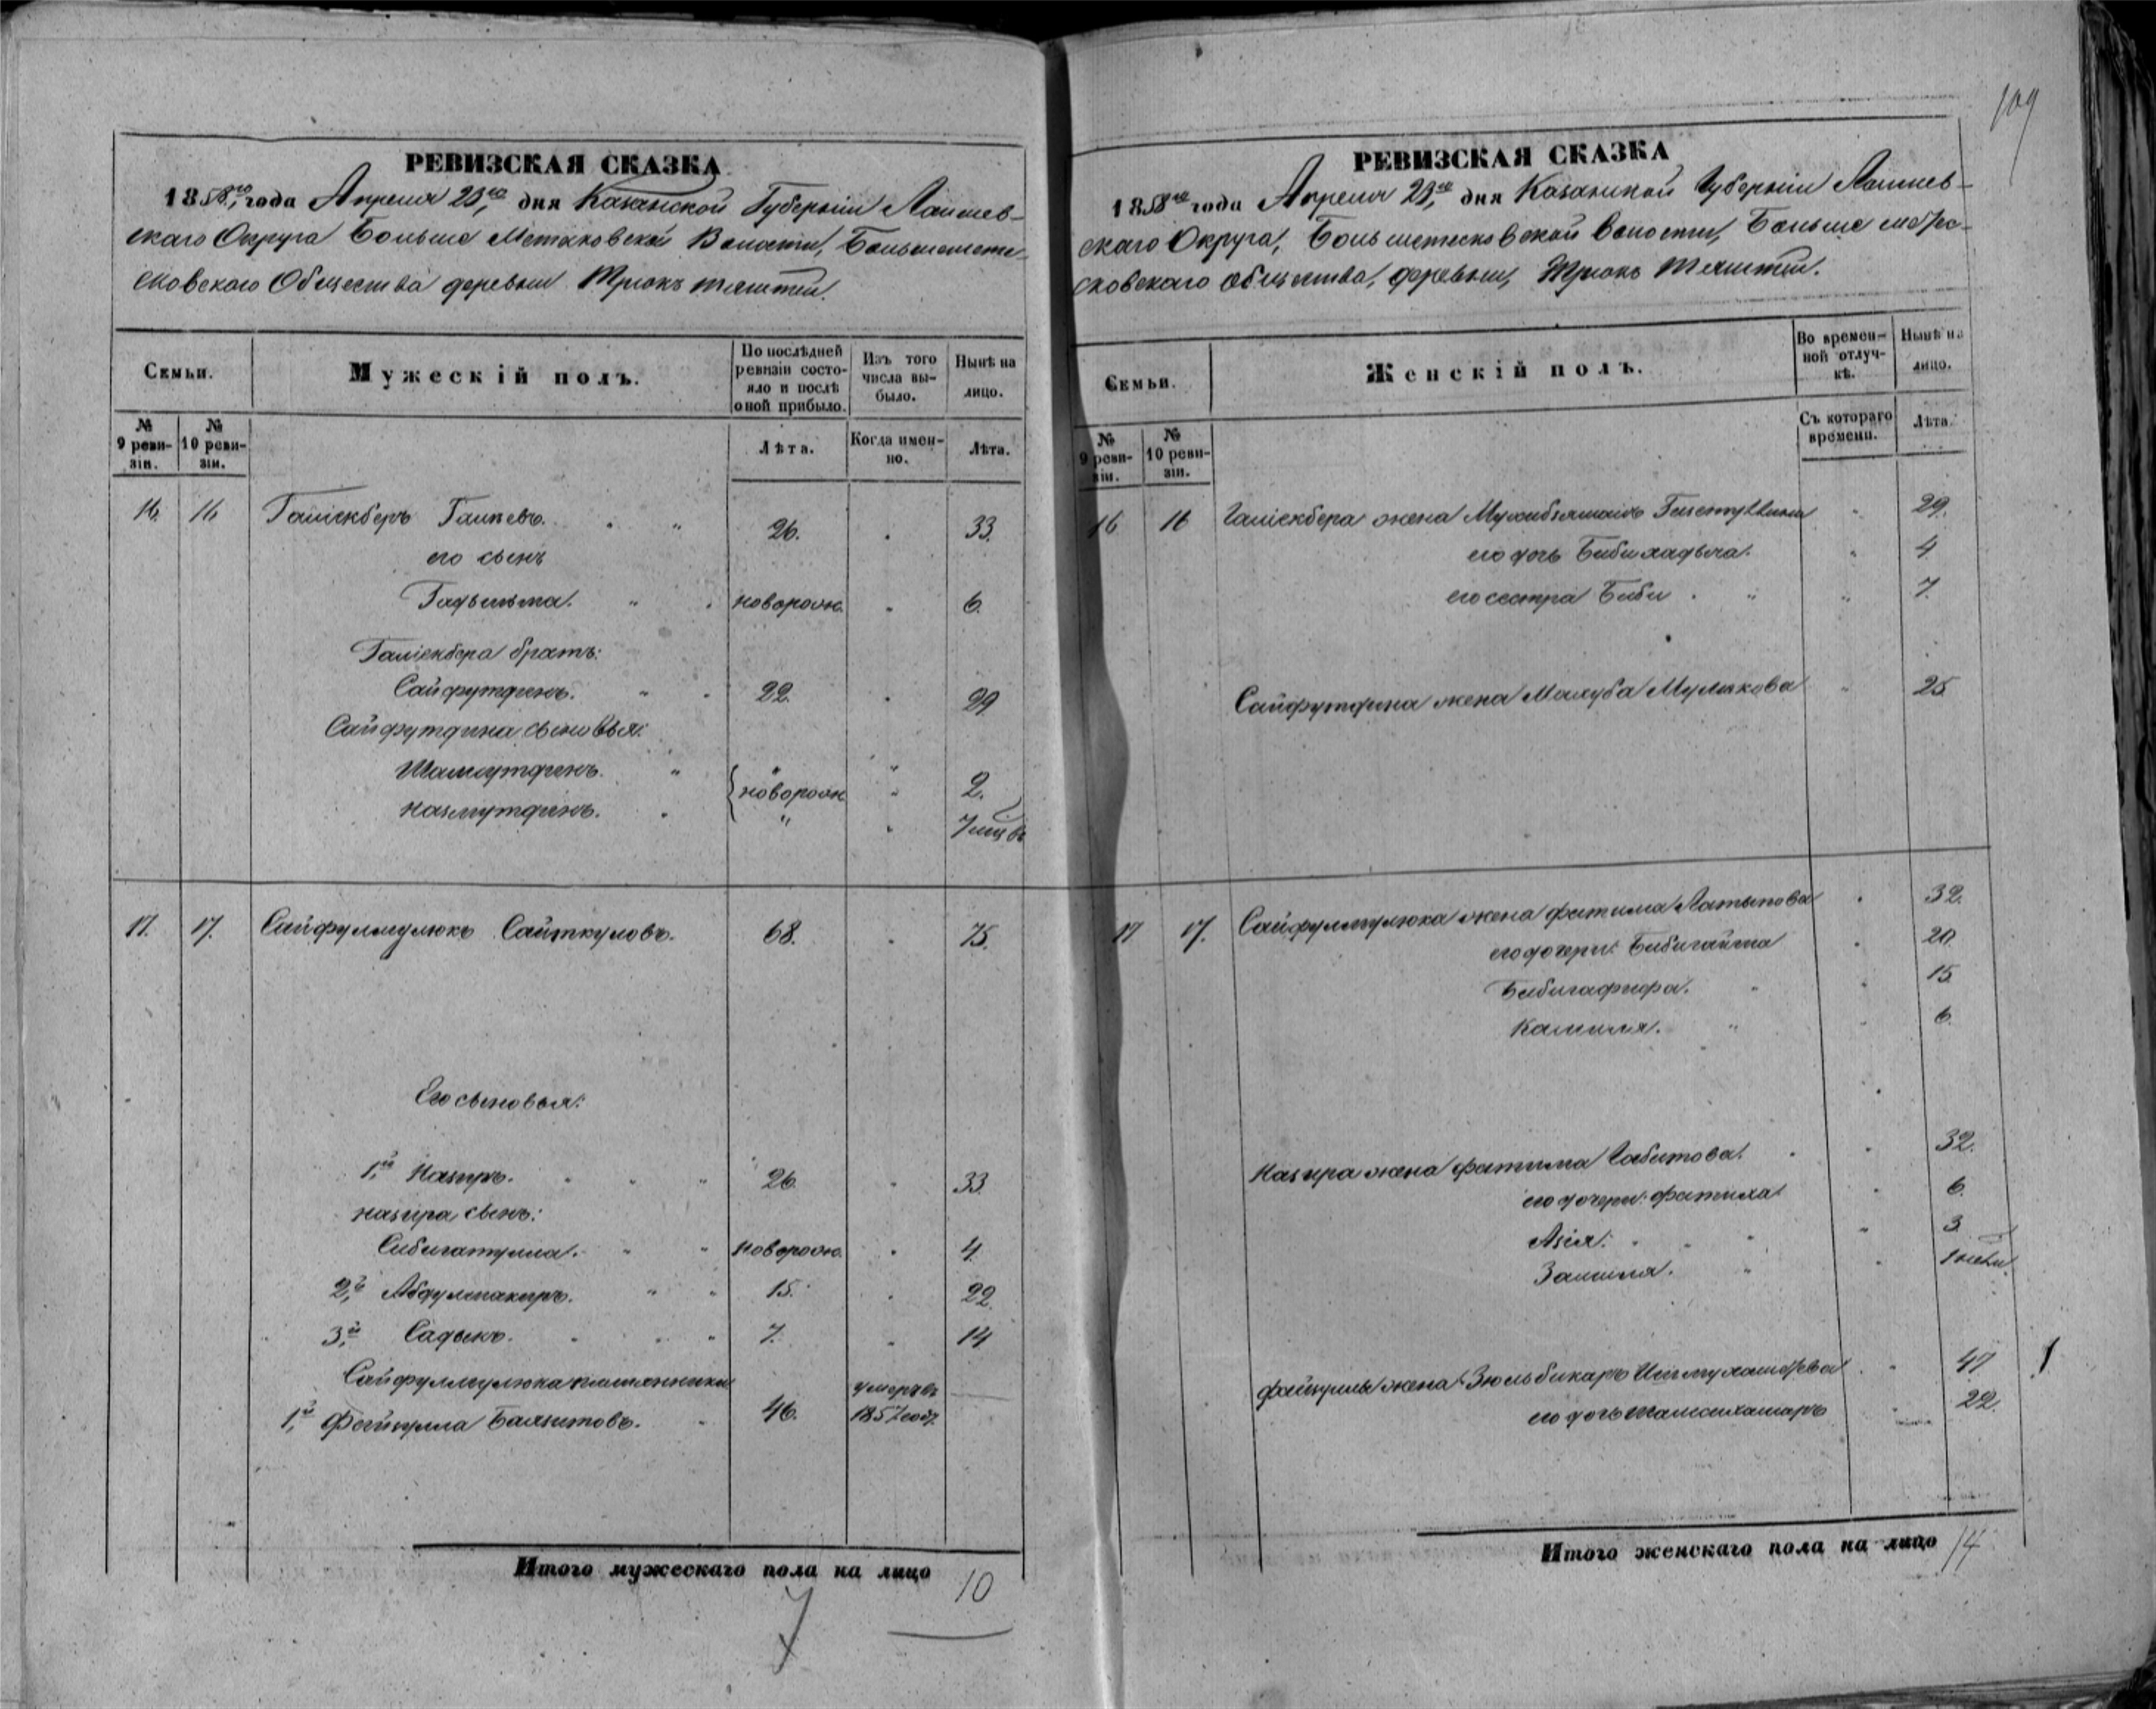 109
РЕВИЗСКАЯ СКАЗКА
1858го года Апреля 23го дня Казанской Губернии Лаишев-
скаго Округа Больше Метесковской Волости, Большемете-
сковскаго Общества деревни Трюкъ Тямтей.
Семьи.
Мужескій полъ.
По послѣдней ревизіи состо-
яло и послѣ оной прибыло.
Изъ того числа вы-
было.
Нынѣ на лицо.
№ 9 реви-
зіи.
№ 10 реви-
зіи.
Лѣта.
Когда имен-
но.
Лѣта.
16. 16 Галіекберъ Галиевъ. 26. 33.
его сынъ
новорож. 6.
Галіекбера братъ:
Сайфутдинъ. 22. 29
Сайфутдина сыновья:
Шамсутдинъ. новорож 2.
Назмутдинъ. " 7 мцвъ
17. 17. Сайфулмулюкъ Сайткуловъ. 68. 75.
Его сыновья:
1й Назиръ. 26. 33.
Назира сынъ:
Сибигатулла. новорож. 4.
2й Абдулшакиръ. 15. 22.
3й Садыкъ. 7. 14
Сайфулмулюка племянники
1й Фейзулла Баязитовъ. 46. умеръ въ 1857 год.
Итого мужескаго пола на лицо 10
7
РЕВИЗСКАЯ СКАЗКА
1858го года Апреля 23го дня Казанской Губерніи Лаишев-
скаго Округа, Большеметесковской Волости, Больше мете-
сковскаго общества, деревни, Трюкъ Тямтей.
Семьи.
Женскій полъ.
Во времен-
ной отлуч-
кѣ.
Нынѣ на лицо.
№ 9 реви-
зіи.
№ 10 реви-
зіи.
Съ котораго времени.
Лѣта.
16 16 Галіекбера жена 29.
его дочь Бибихадыча. 4
его сестра Биби 7.
Сайфутдина жена Махуба Мулюкова 25
17 17. Сайфулмулюка жена Фатима Латыпова 32.
его дочери: Бибигайша 20.
Бибигафифа. 15
Камиля. 6.
Назира жена Фатима Габитова. 32.
его дочери: Фатиха 6.
Азія. 3.
Замиля. 1 нед.
Файзуллы жена Зюльбикаръ Ишмухаметева 47 1
его дочь Шамсикамаръ 22.
Итого женскаго пола на лицо 14